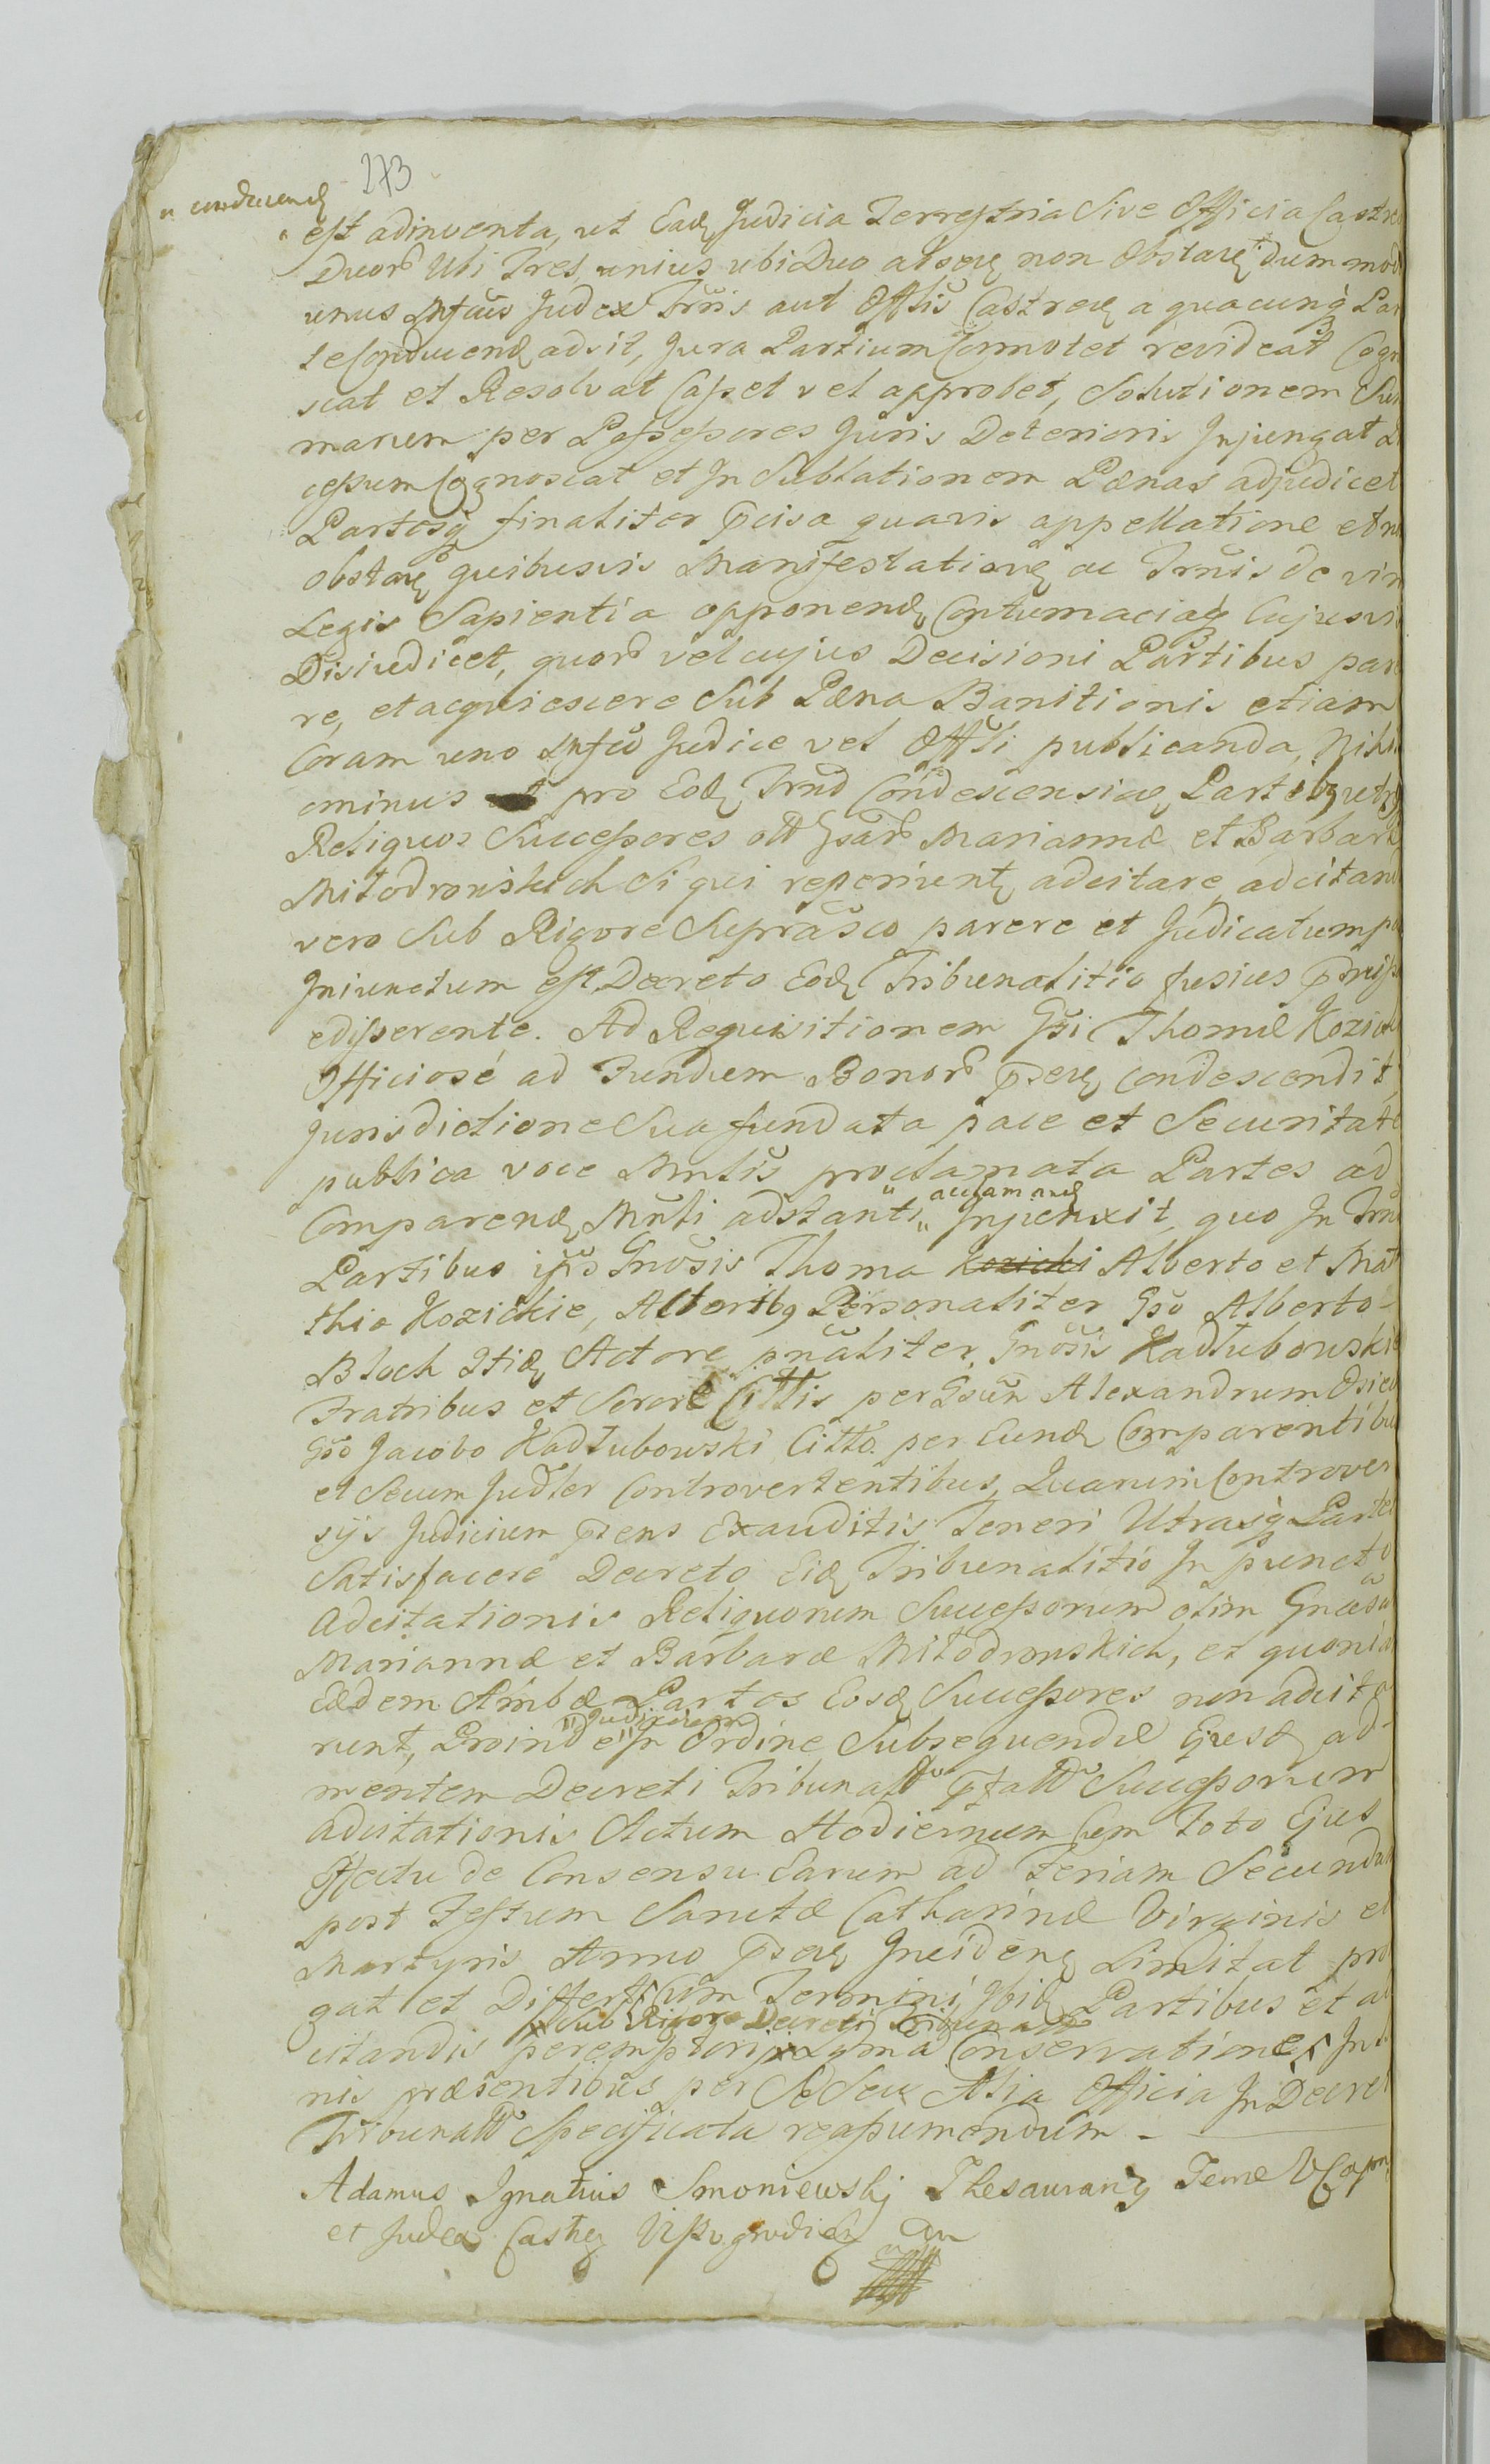 273
" conducend
est adinventa, ut Ead Judicia Terrestria Sive Officia Castren
Duorũ Ubi Tres, unius ubi Duo absen non Obstan dummod
unus Infus Judex Trris aut Offlis Castren a quacunq Par
te Conducend adsit, Jura Partium Connotet revideat Cogno
scat et Resolvat Casset vel approbet, Solutionem Sum
marum per Possessores Juris Deterioris Injungat
cessum Cognoscat et In Sublationem Pænas adjudicet
Partesq finaliter pcisa quavis appellatione et no
obstan quibusvis Manifestation ac Trnis de vim
Legis Sapientia opponend Contumaciaq Cujusvis
Disiudicet, quorũ vel cujus Decisioni Partibus pare
re, et acquiescere Sub Pæna Banitionis etiam
Coram uno Infto Judice vel Offli publicanda, Nihil
ominus pro Eod Trno Condescensian Partibq utrq
Reliquos Successores olt Gsarũ Mariannæ et Barbaræ
Mitodrowskich Si qui reperiunt adcitare adcitand
vero Sub Rigore Suprasco parere et Judicatum pa
Injunctum est Decreto Eod Tribunalitio fusius pmiss
edisserente. Ad Requisitionem Gsi Thomæ Kozick
Officiosé ad Fundum Bonorũ psen condescendit,
Jurisdictione Sua fundata pace et Securitate
publica voce Mnlis proclamata Partes ad
Comparend Mnli adstanti " acclamand Injunxit, quo In Trno
Partibus ipis Gnosis Thoma Kozicki Alberto et Mat
thia Kozickie, Alteribq Personaliter Gso Alberto
Bloch Itid Actore pnaliter, Gnosis Kadłubowskie
Fratribus et Sorore Cittis per Gsum Alexandrum Osieck
Gso Jacobo Kadłubowski Citto. per Eund Comparentibus
et Secum Judler Controvertentibus, Quarum Controver
sijs Judicium psens Exauditis Teneri Utrasq Partes
Satisfacere Decreto Eid Tribunalitio In puncto
Adcitationis Reliquorum Successorum olim Gnosarũ
Mariannæ et Barbaræ Mitodrowskich, et quoniam
Eædem Ambæ Partes Eosd Successores non adcita
runt, Proinde " Judicium " In Ordine Subsequendæ Ejusd ad
mentem Decreti Tribunalltti pfatt Successorum
adcitationis Actum Hodiernum Cum Toto Ejus
Effectu de Consensu Earum ad Feriam Secundam
post Festum Sanctæ Catharinæ Virginis et
Martyris Anno psen Inciden Limitat pro
gat et Differt, Cum Termini Ibid Partibus et ad
x Sub Rigore Decreti Tribunaltt
citandis peremptorij x Lgma Conservatione, In
nis præsentibus per Se Seu Alia Officia In Decre
Tribunaltt Specificata reassumendum -
Adamus Ignatius Smoniewskj Thesaurarq Terræ
et Judex Castren Wyszogrodien